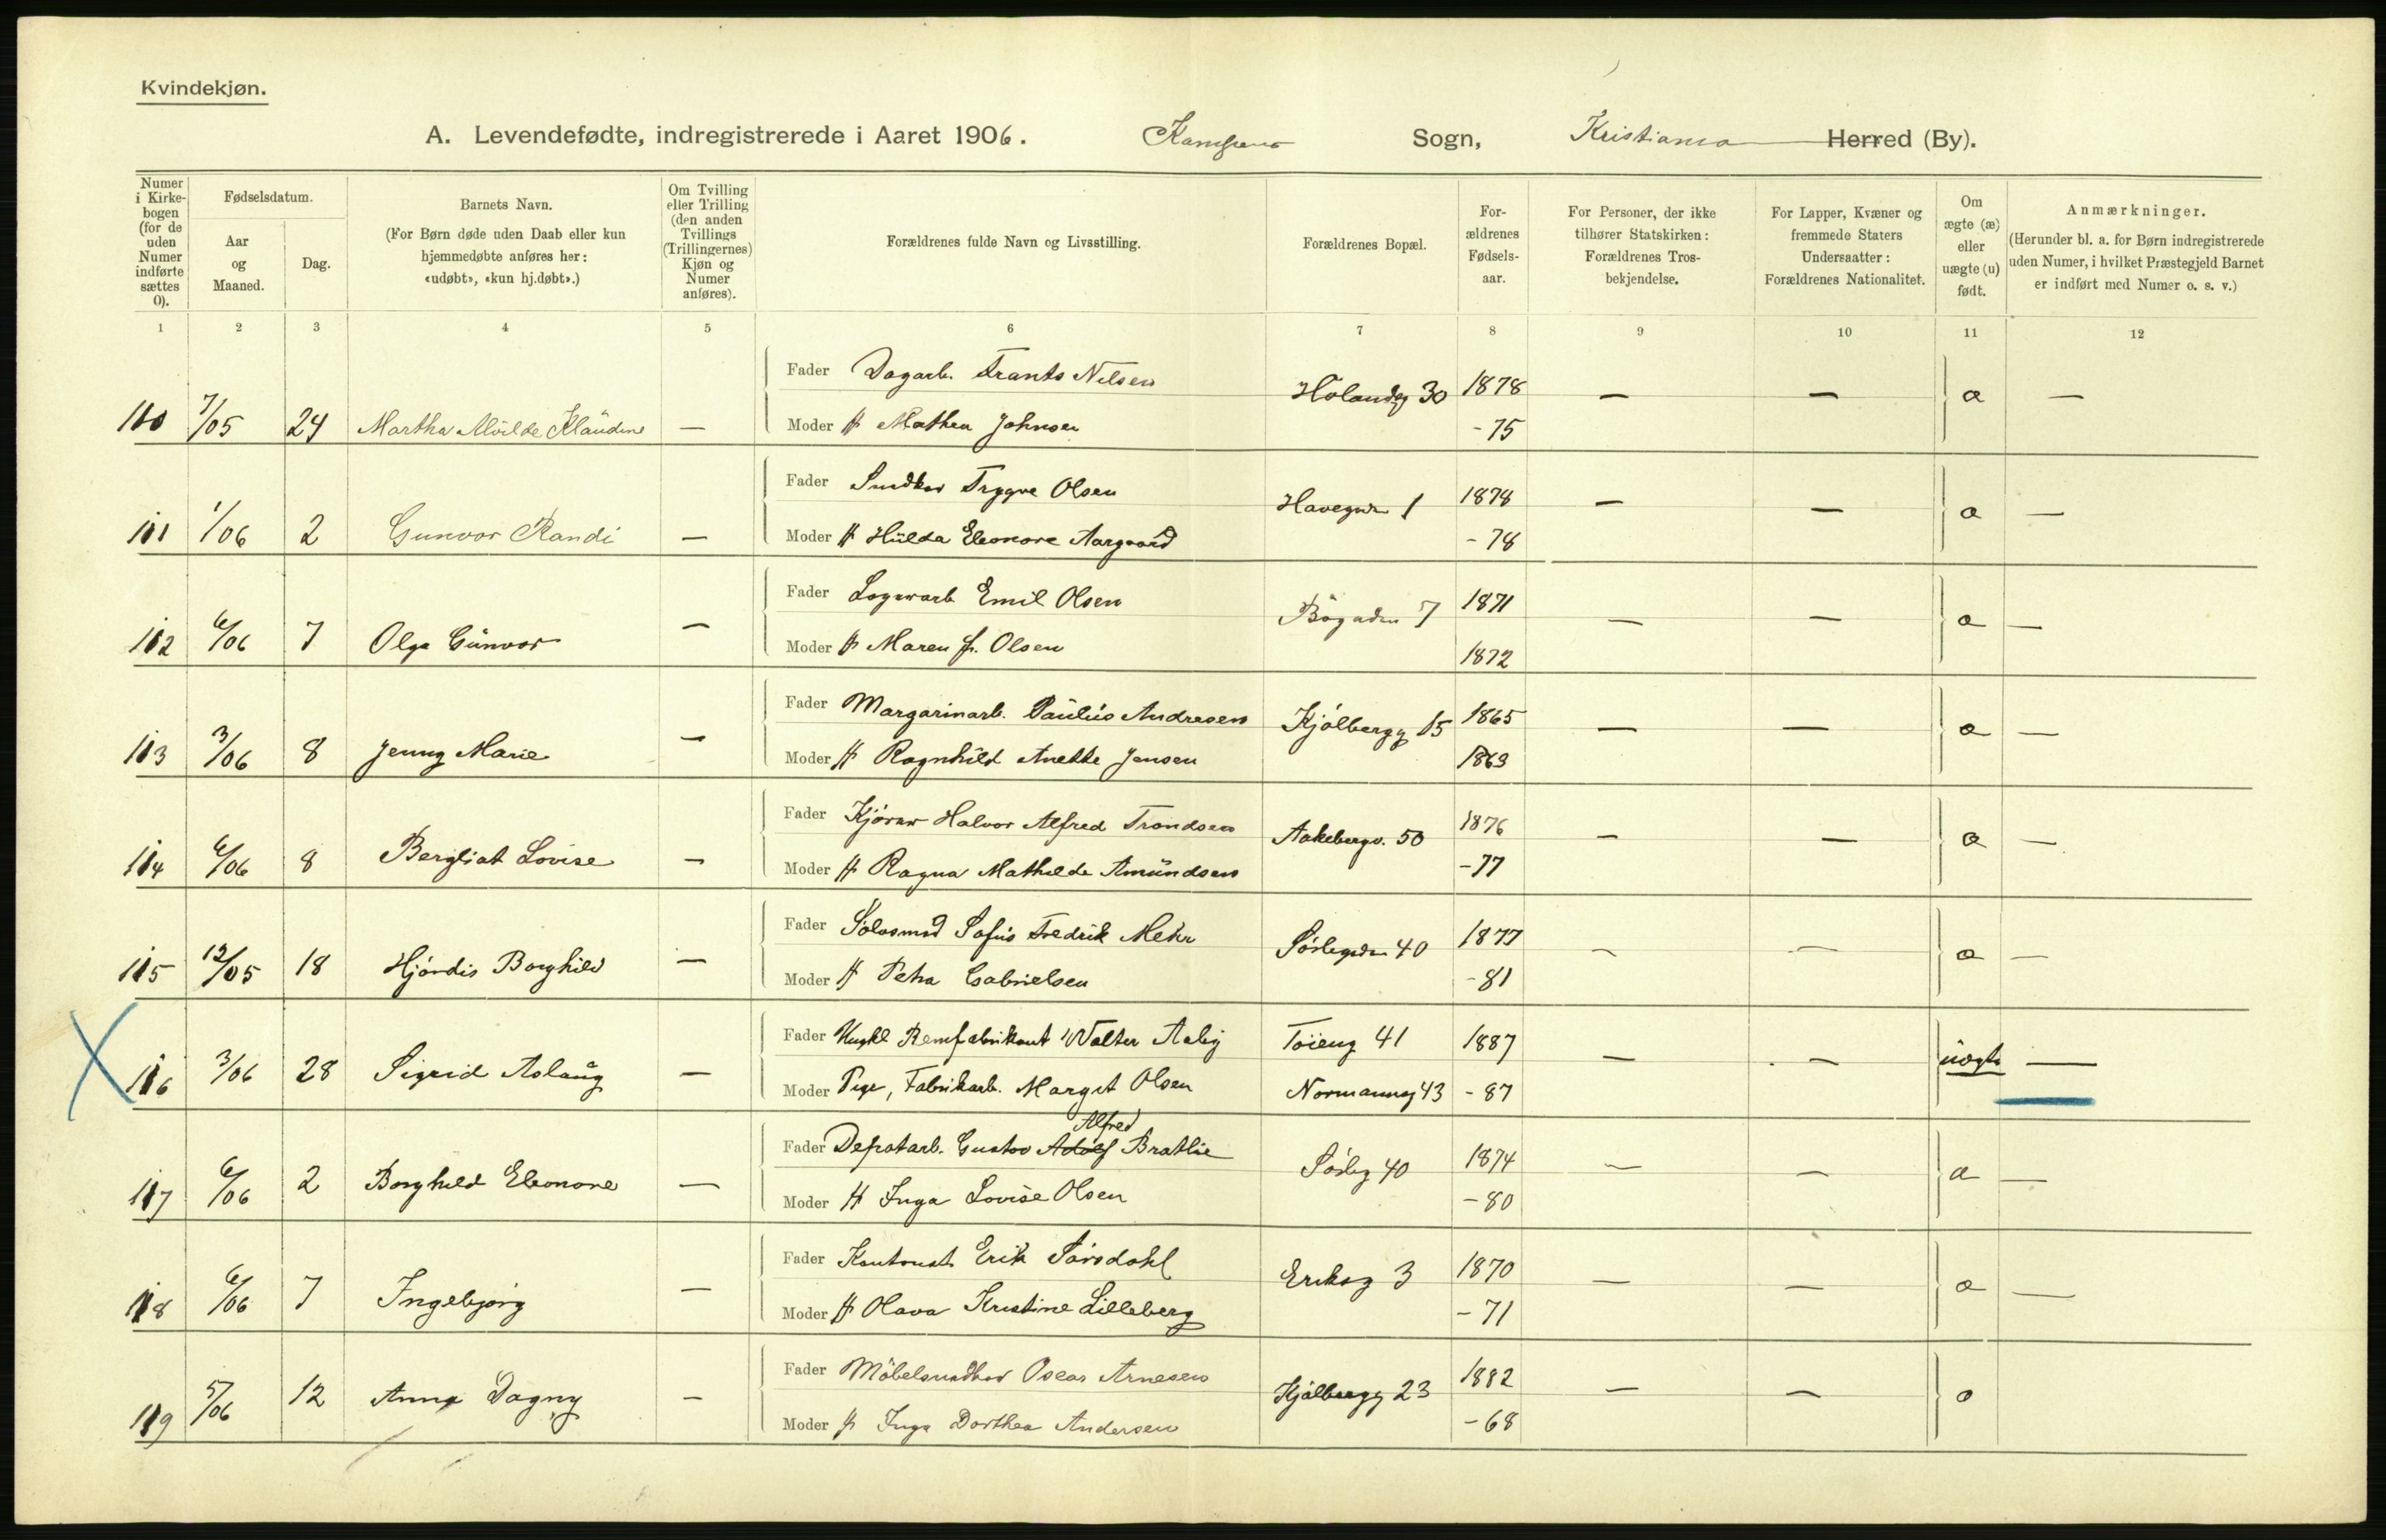 Kvindekjøn.
A. Levendefødte, indregistrerede i Aaret 1906. Kampens Sogn, Kristiania Herred (By).
Numer i Kirkebogen (for de uden Numer indførte sættes 0).
Fødselsdatum.
Aar og Maaned.
Dag.
Barnets Navn.
(For Børn døde uden Daab eller kun hjemmedøbte anføres her: «udøbt», «kun hj.døbt».)
Om Tvilling eller Trilling (den anden Tvillings (Trillingernes) Kjøn og Numer anføres).
Forældrenes fulde Navn og Livsstilling.
Forældrenes Bopæl.
For-ældrenes Fødsels-aar.
For Personer, der ikke tilhører Statskirken: Forældrenes Tros-bekjendelse.
For Lapper, Kvæner og fremmede Staters Undersaatter: Forældrenes Nationalitet.
Om ægte (æ) eller uægte (u) født.
Anmærkninger.
(Herunder bl. a. for Børn indregistrerede uden Numer, i hvilket Præstegjeld Barnet er indført med Numer o. s. v.)
1 2 3 4 5 6 7 8 9 10 11 12
Fader Dagarb. Frants Nilsen Hölandsg 30 1878 — — æ —
110 7/05 24 Martha Alvilde Klaudine — Moder H Mathea Johnsen - 75
Fader Snedker Trygve Olsen Havegdn 1 1878 — — æ —
111 1/06 2 Gunvor Randi — Moder H Hilda Eleonore Aargaard - 78
Fader Lagerarb Emil Olsen Bögaden 7 1871 — — æ —
112 6/06 7 Olga Gunvor — Moder H Maren f. Olsen 1872
Fader Margarinarb. Paulus Andresen Kjölbergg 15 1865 — — æ —
113 3/06 8 Jenny Marie — Moder H Ragnhild Anette Jensen 1863
Fader Kjörer Halvor Alfred Trondsen Aakebergv. 50 1876 — — æ —
114 6/06 8 Bergliot Lovise — Moder H Ragna Mathilde Amundsen - 77
Fader Sölvsmed Sofus Fredrik Mehr Sörligdn 40 1877 — — æ —
115 12/05 18 Hjördis Borghild — Moder H Petra Gabrielsen - 81
Fader Ungkl Remfabrikant Walter Aaby Töieng 41 1887 — — uægte —
116 3/06 28 Sigrid Aslaug — Moder Pige, Fabrikarb. Margit Olsen Normannsg 43 - 87
Alfred
Fader Depotarb. Gustav Adolf Bratlie Sörlig 40 1874 — — æ —
117 6/06 2 Borghild Eleonore — Moder H Inga Lovise Olsen - 80
Fader Kontorist Erik Sörsdahl Eriksg 3 1870 — — æ —
118 6/06 7 Ingebjörg — Moder H Olava Kristine Lilleberg - 71
Fader Möbelsnedker Oscar Arnesen Kjölbergg 23 1882 — — æ
119 5/06 12 Anna Dagny — Moder H Inga Dorthea Andersen - 68